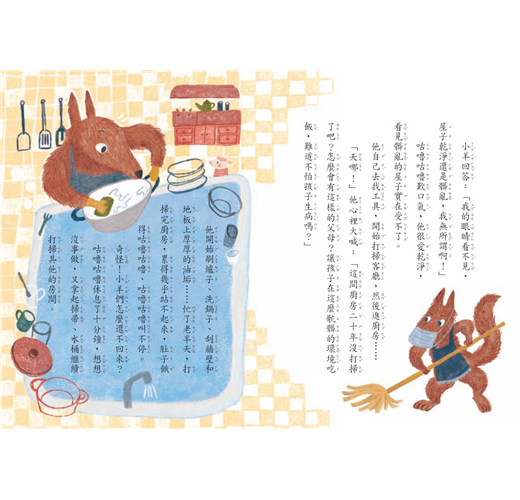 小羊回答:「我的眼睛看不見,
屋子乾淨還是髒亂,我無所謂啊!」
咕嚕咕嚕歎口氣,他很愛乾淨,
看見髒亂的屋子實在受不了。
他自己去找工具,開始打掃客廳,然後進廚房……
「天哪!」他心裡大喊:「這間廚房二十年沒打掃
了吧?怎麼會有這樣的父母?讓孩子在這麼骯髒的環境吃
飯,難道不怕孩子生病嗎?」
他開始刷爐子、洗鍋子、刮牆壁和
地板上厚厚的油垢……忙了老半天,打
掃完廚房,累得幾乎站不起來,肚子餓
得咕嚕咕嚕、咕嚕咕嚕叫不停。
奇怪!小羊們怎麼還不回來?
咕嚕咕嚕休息了十分鐘,想想
沒事做,又拿起掃帚、水桶繼續
打掃其他的房間。